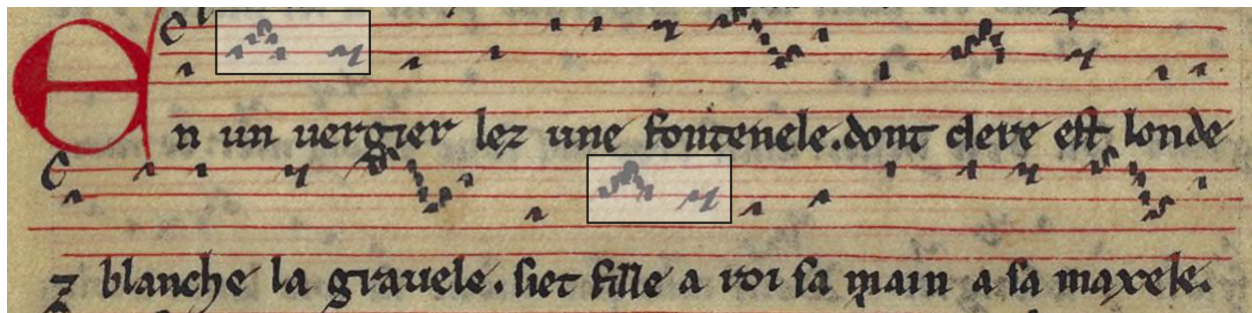 En un vergier lez une fontenele. dont clere est londe
⁊ blanche la grauele. siet fille a roi sa main a sa maxele.